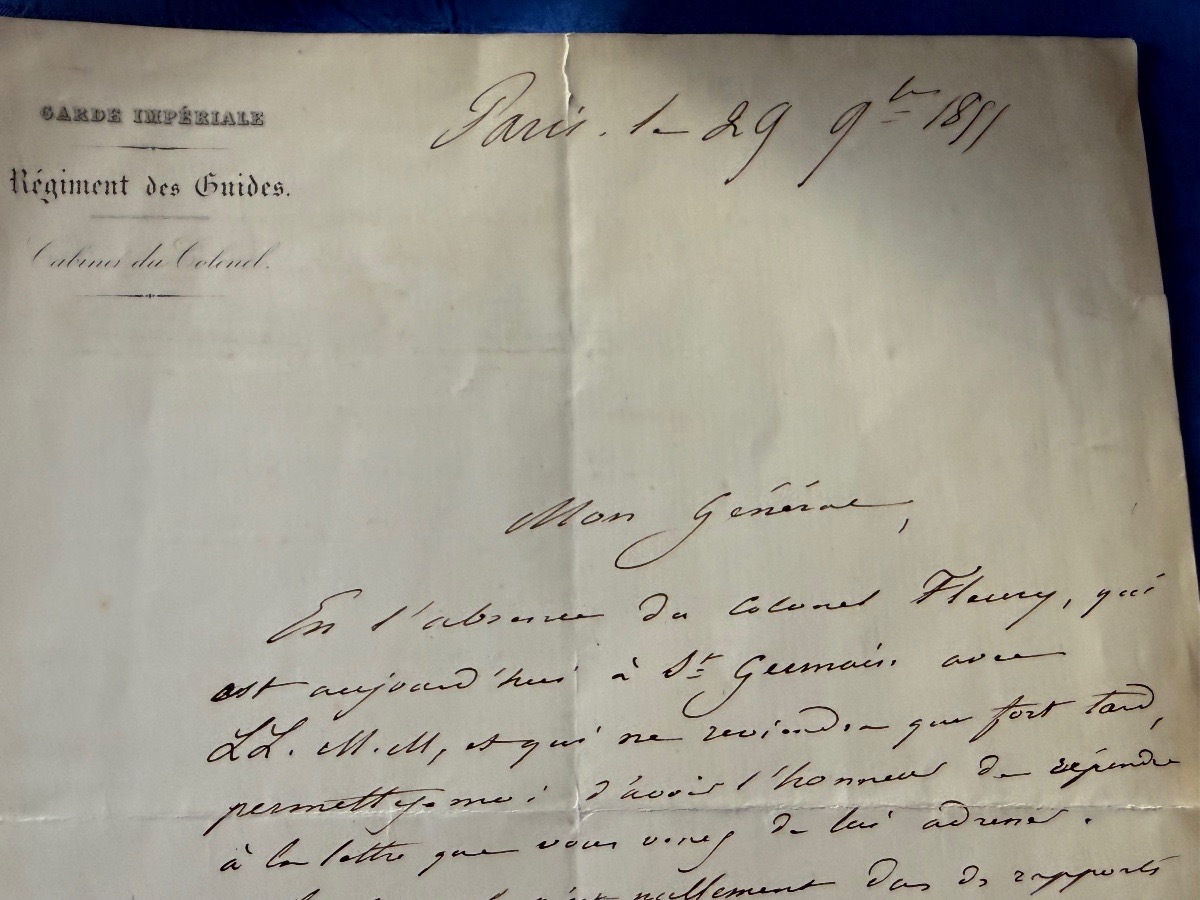 GARDE IMPÉRIALE
Régiment des Guides.
Cabinet du Colonel.
Paris. le 29 9bre 1855
Mon Général,
En l'absence du Colonel Fleury, qui
est aujourd'hui à St Germain avec
LL. M.M, et qui ne reviendra que fort tard,
permettez moi d'avoir l'honneur de répondre
à la lettre que vous venez de lui adresser.
nullement dans des rapports